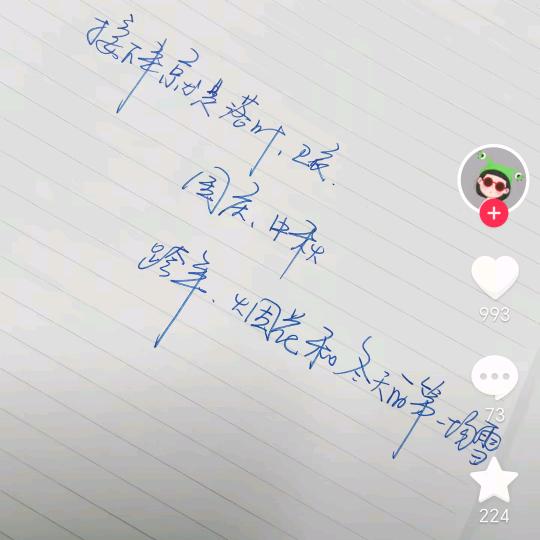 接下来就是落叶、晚衣.
国庆、中秋
跨年、烟花和冬天的第一场雪
993
73
224